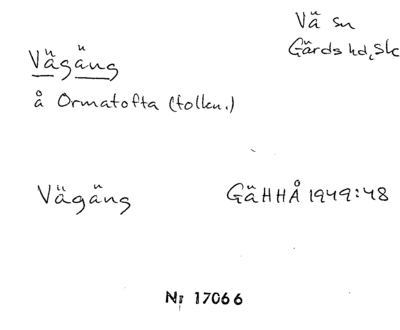 Vä sn
Gärds hd, Sk
Vägäng
å Ormatofta (tolkn.)
Vägäng GäHHÅ 1949:48
Nr 17066